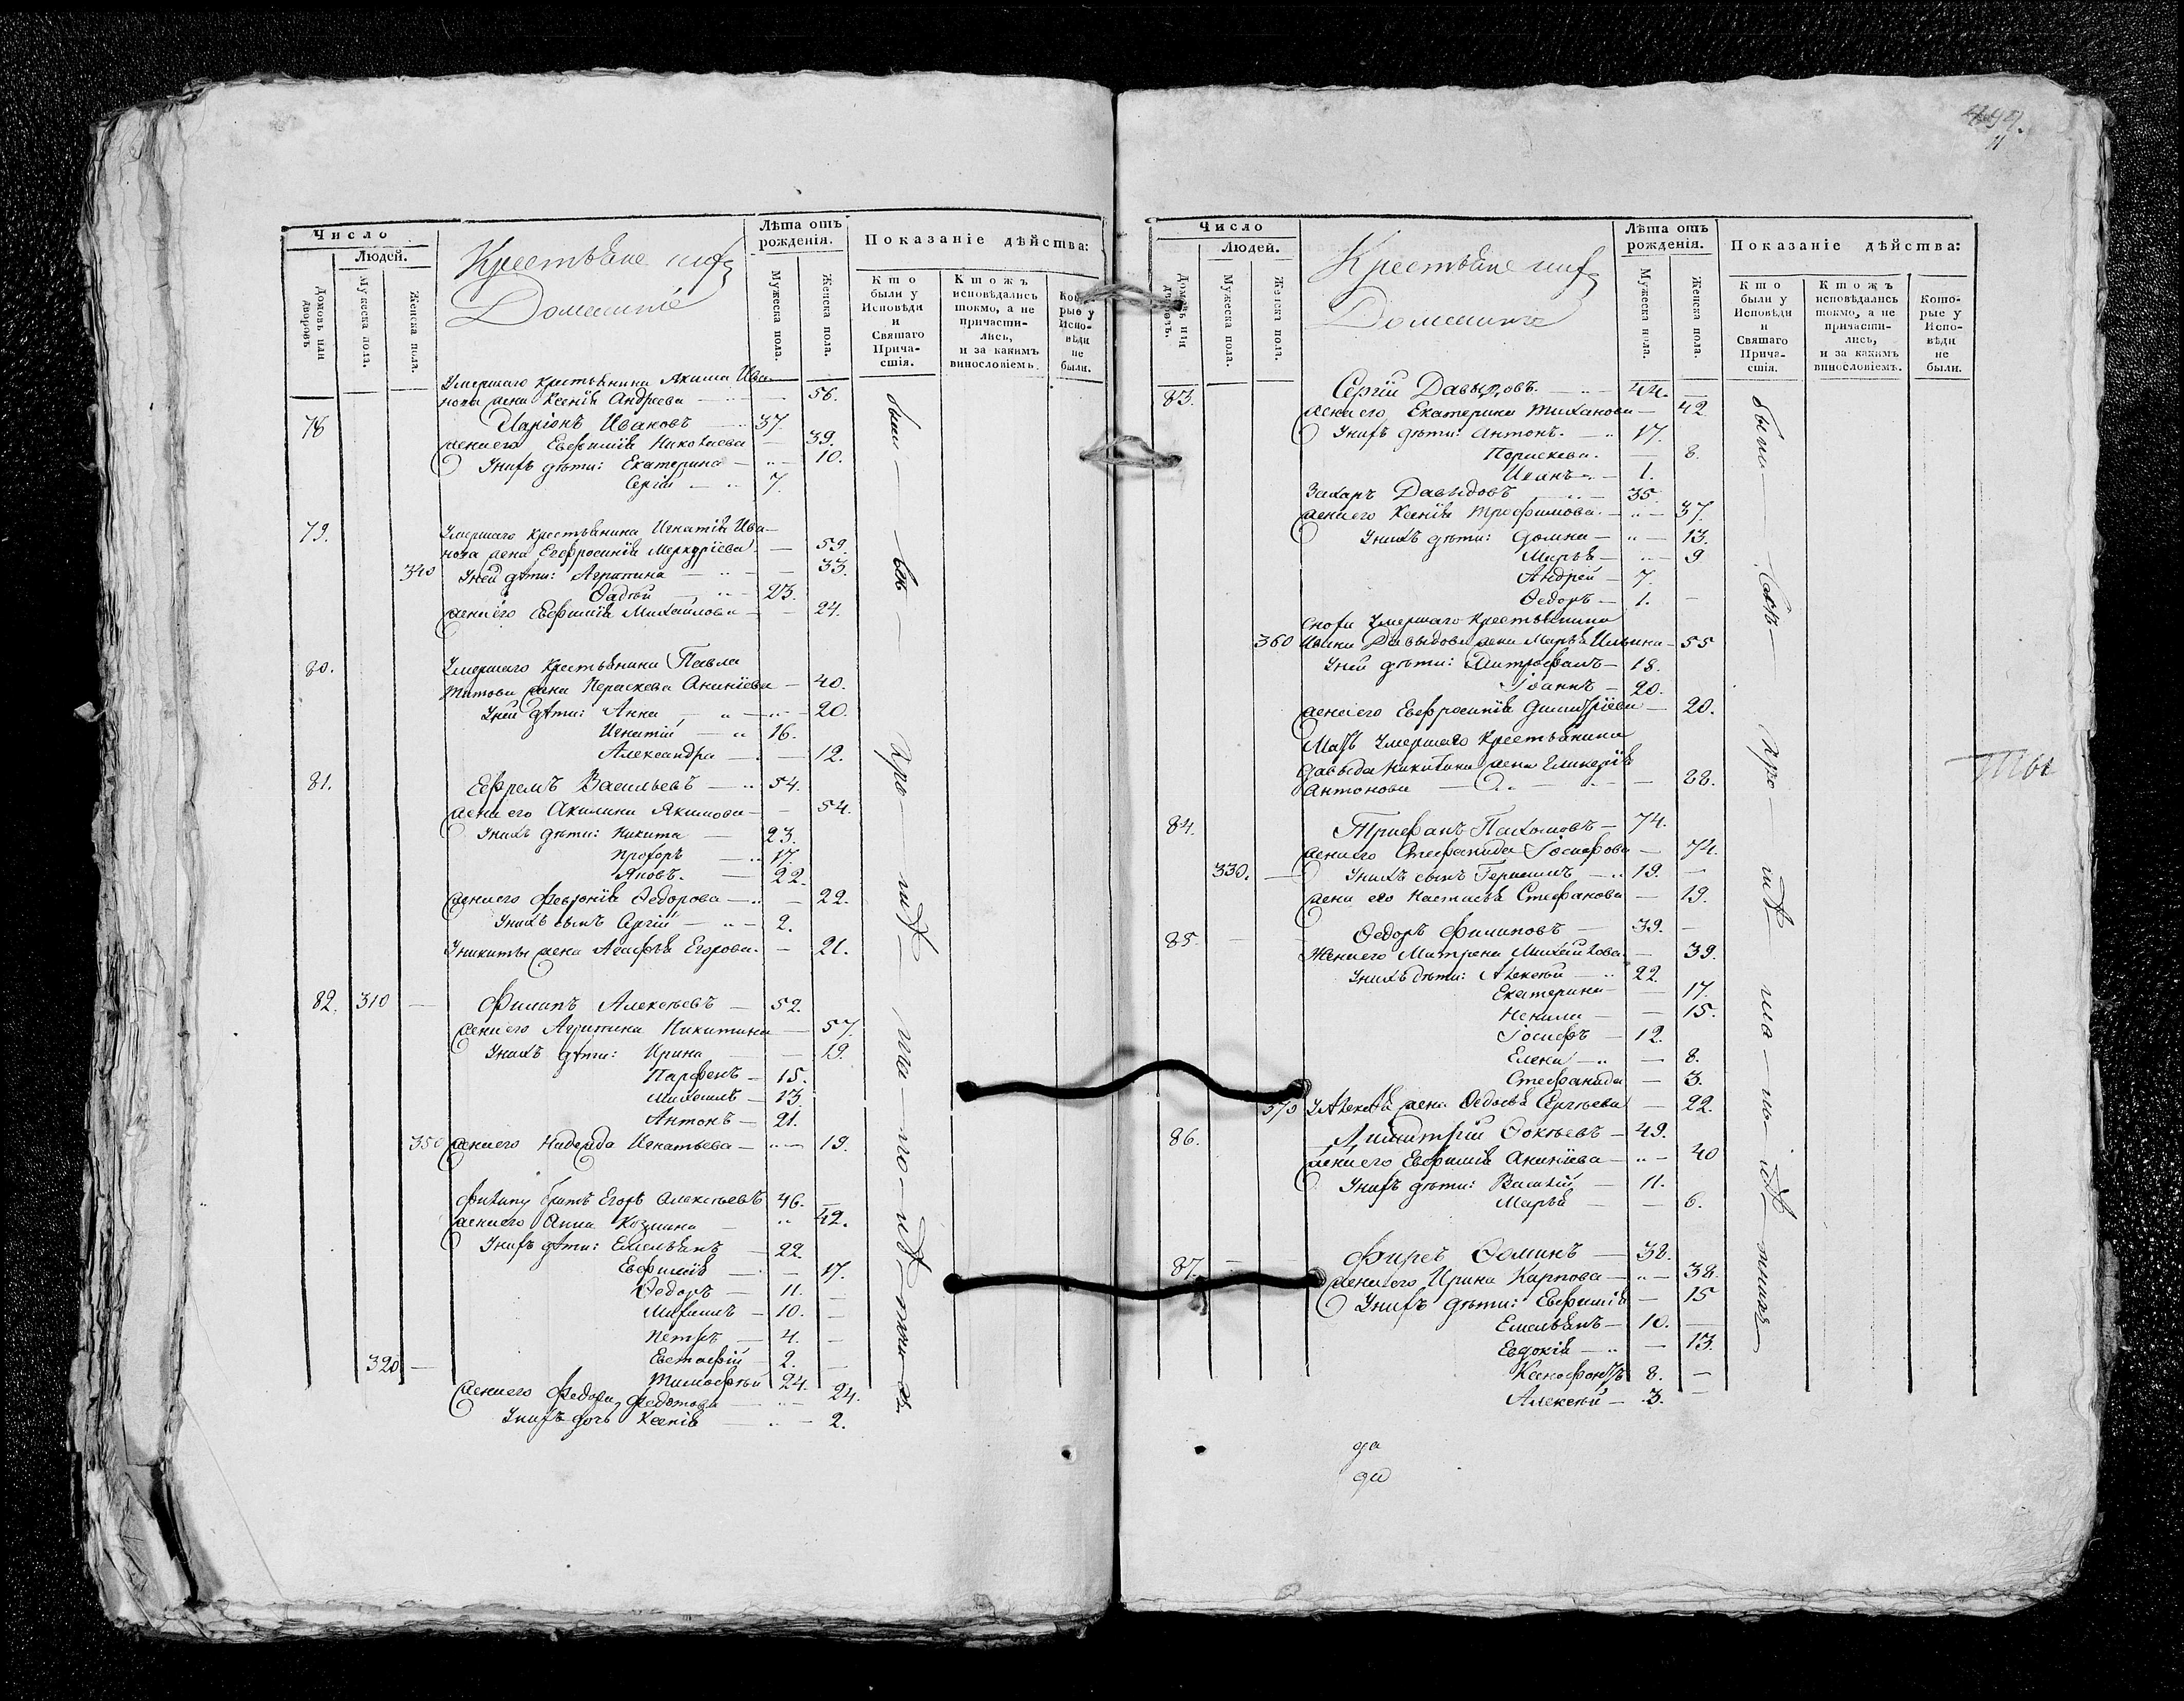 Число
Людей.
Домовъ или дворовъ
Мужеска пола.
Женска пола.
Крестьяне
Домашніе
Лѣта отъ рожденія.
Мужеска пола.
Женска пола.
Показаніе дѣйства:
Кто были у Исповѣди и Святаго Прича-стія.
Ктожъ исповѣдались токмо, а не причасти-лись, и за какимъ винословіемъ.
Кото-рые у Испо-вѣди не были.
Умершаго крестьянина Акима Ива-
нова жена Ксенія Андреева — 56.
78 Иларіонъ Ивановъ 37
жена его Евфимія Николаева — 39.
У нихъ дѣти: Екатерина — 10.
Сергій — 7.
79. Умершаго крестьянина Игнатія Ива-
нова жена Евфросинія Меркуріева — 59.
340 У ней дѣти: Агрипина — 33.
Фадѣй — 23.
жена его Евфимія Михайлова — 24.
80. Умершаго крестьянина Павла
Титова жена Параскева Ананіева — 40.
У ней дѣти: Анна — 20.
Игнатій — 16.
Александра — 12.
81. Ефремъ Васильевъ — 54.
жена его Акилина Якимова — 54.
У нихъ дѣти: Никита — 23.
Прохоръ — 17.
Яковъ. — 22.
жена его Февронія Федорова — 22.
У нихъ сынъ Сергій — 2.
У Никиты жена Агафья Егорова. — 21.
82. 310 — Филипъ Алексѣевъ — 52.
жена его Агрипина Никитина — 57.
У нихъ дѣти: Ирина — 19.
Парфенъ — 15.
Михаилъ — 13
Антонъ — 21.
350 жена его Надежда Игнатьева — 19.
Филипу братъ Егоръ Алексѣевъ 46.
жена его Анна Козмина — 42.
У нихъ дѣти: Емельянъ — 22
Евфимія — 17.
Федоръ — 11.
Михаилъ — 10.
Петръ — 4.
Евстафій — 2.
320 — Тимофѣй 24.
жена его Федора Федотова — 24.
У нихъ дочь Ксенія — 2.
499.
11
Число
Людей.
Домовъ или дворовъ.
Мужеска пола.
Женска пола.
Крестьяне
Домашніе
Лѣта отъ рожденія.
Мужеска пола.
Женска пола.
Показаніе дѣйства:
Кто были у Исповѣди и Святаго Прича-стія.
Ктожъ исповѣдались токмо, а не причасти-лись, и за какимъ винословіемъ.
Кото-рые у Испо-вѣди не были.
83. Сергій Давыдовъ. — 44.
жена его Екатерина Тиханова — 42
У нихъ дѣти: Антонъ. — 17.
Параскева. — 8.
Иванъ — 1.
Захаръ Давыдовъ — 35.
жена его Ксенія Трофимова — 37.
У нихъ дѣти: Домна — 13.
Марья — 9
Андрей — 7.
Федоръ — 1.
Умершаго крестьянина
360 Давыдова жена Марья Ильина — 55
У ней дѣти: Митрофанъ — 18.
Іоаннъ — 20.
жена его Евфросинія Димитріева — 20.
Мать умершаго крестьянина
Давыда Никитина жена
Антонова — 88.
84. Трифанъ Пахомовъ — 74.
жена его Стефанида Іосифова — 74.
330. — У нихъ сынъ Герасимъ — 19.
жена его Настасья Стефанова — 19.
85. Федоръ Филиповъ — 39.
Жена его Матрена Михайлова. — 39.
У нихъ дѣти: Алексѣй — 22.
Екатерина — 17.
Ненила — 15.
Іосифъ — 12.
Елена — 8.
Стефанида — 3.
370 У Алексѣя жена Федосья Сергѣева — 22.
86. Димитрій Фокѣевъ — 49.
жена его Евфимія Ананіева — 40
У нихъ дѣти: Василій — 11.
Марья — 6.
87. Фирсъ Фоминъ — 38.
жена его Ирина Карпова — 38.
У нихъ дѣти: Евфимія — 15
Емельянъ — 10.
Евдокія — 13.
Ксенофонтъ 8.
Алексѣй — 3.